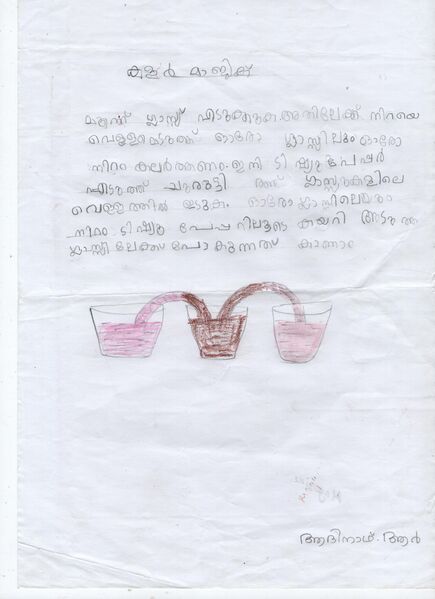 കളർ മാജിക്ക്
മൂന്ന് ഗ്ലാസ്സ് എടുക്കുക അതിലേക്ക് നിറയെ
വെള്ളമെടുത്ത് ഓരോ ഗ്ലാസ്സിലും ഓരോ
നിറം കലർത്തണം. ഇനി ടിഷ്യു പേപ്പർ
എടുത്ത് ചുരുട്ടി രണ്ട് ഗ്ലാസ്സുകളിലെ
വെള്ളത്തിൽ ഇടുക. ഓരോ ഗ്ലാസിലെയും
നിറം ടിഷ്യു പേപ്പറിലൂടെ കയറി അടുത്ത
ഗ്ലാസ്സിലേക്ക് പോകുന്നത് കാണാം
ആദിനാഥ്. ആർ